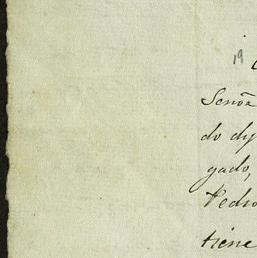 19
Señor
do dy
gado,
Pedro
tiene